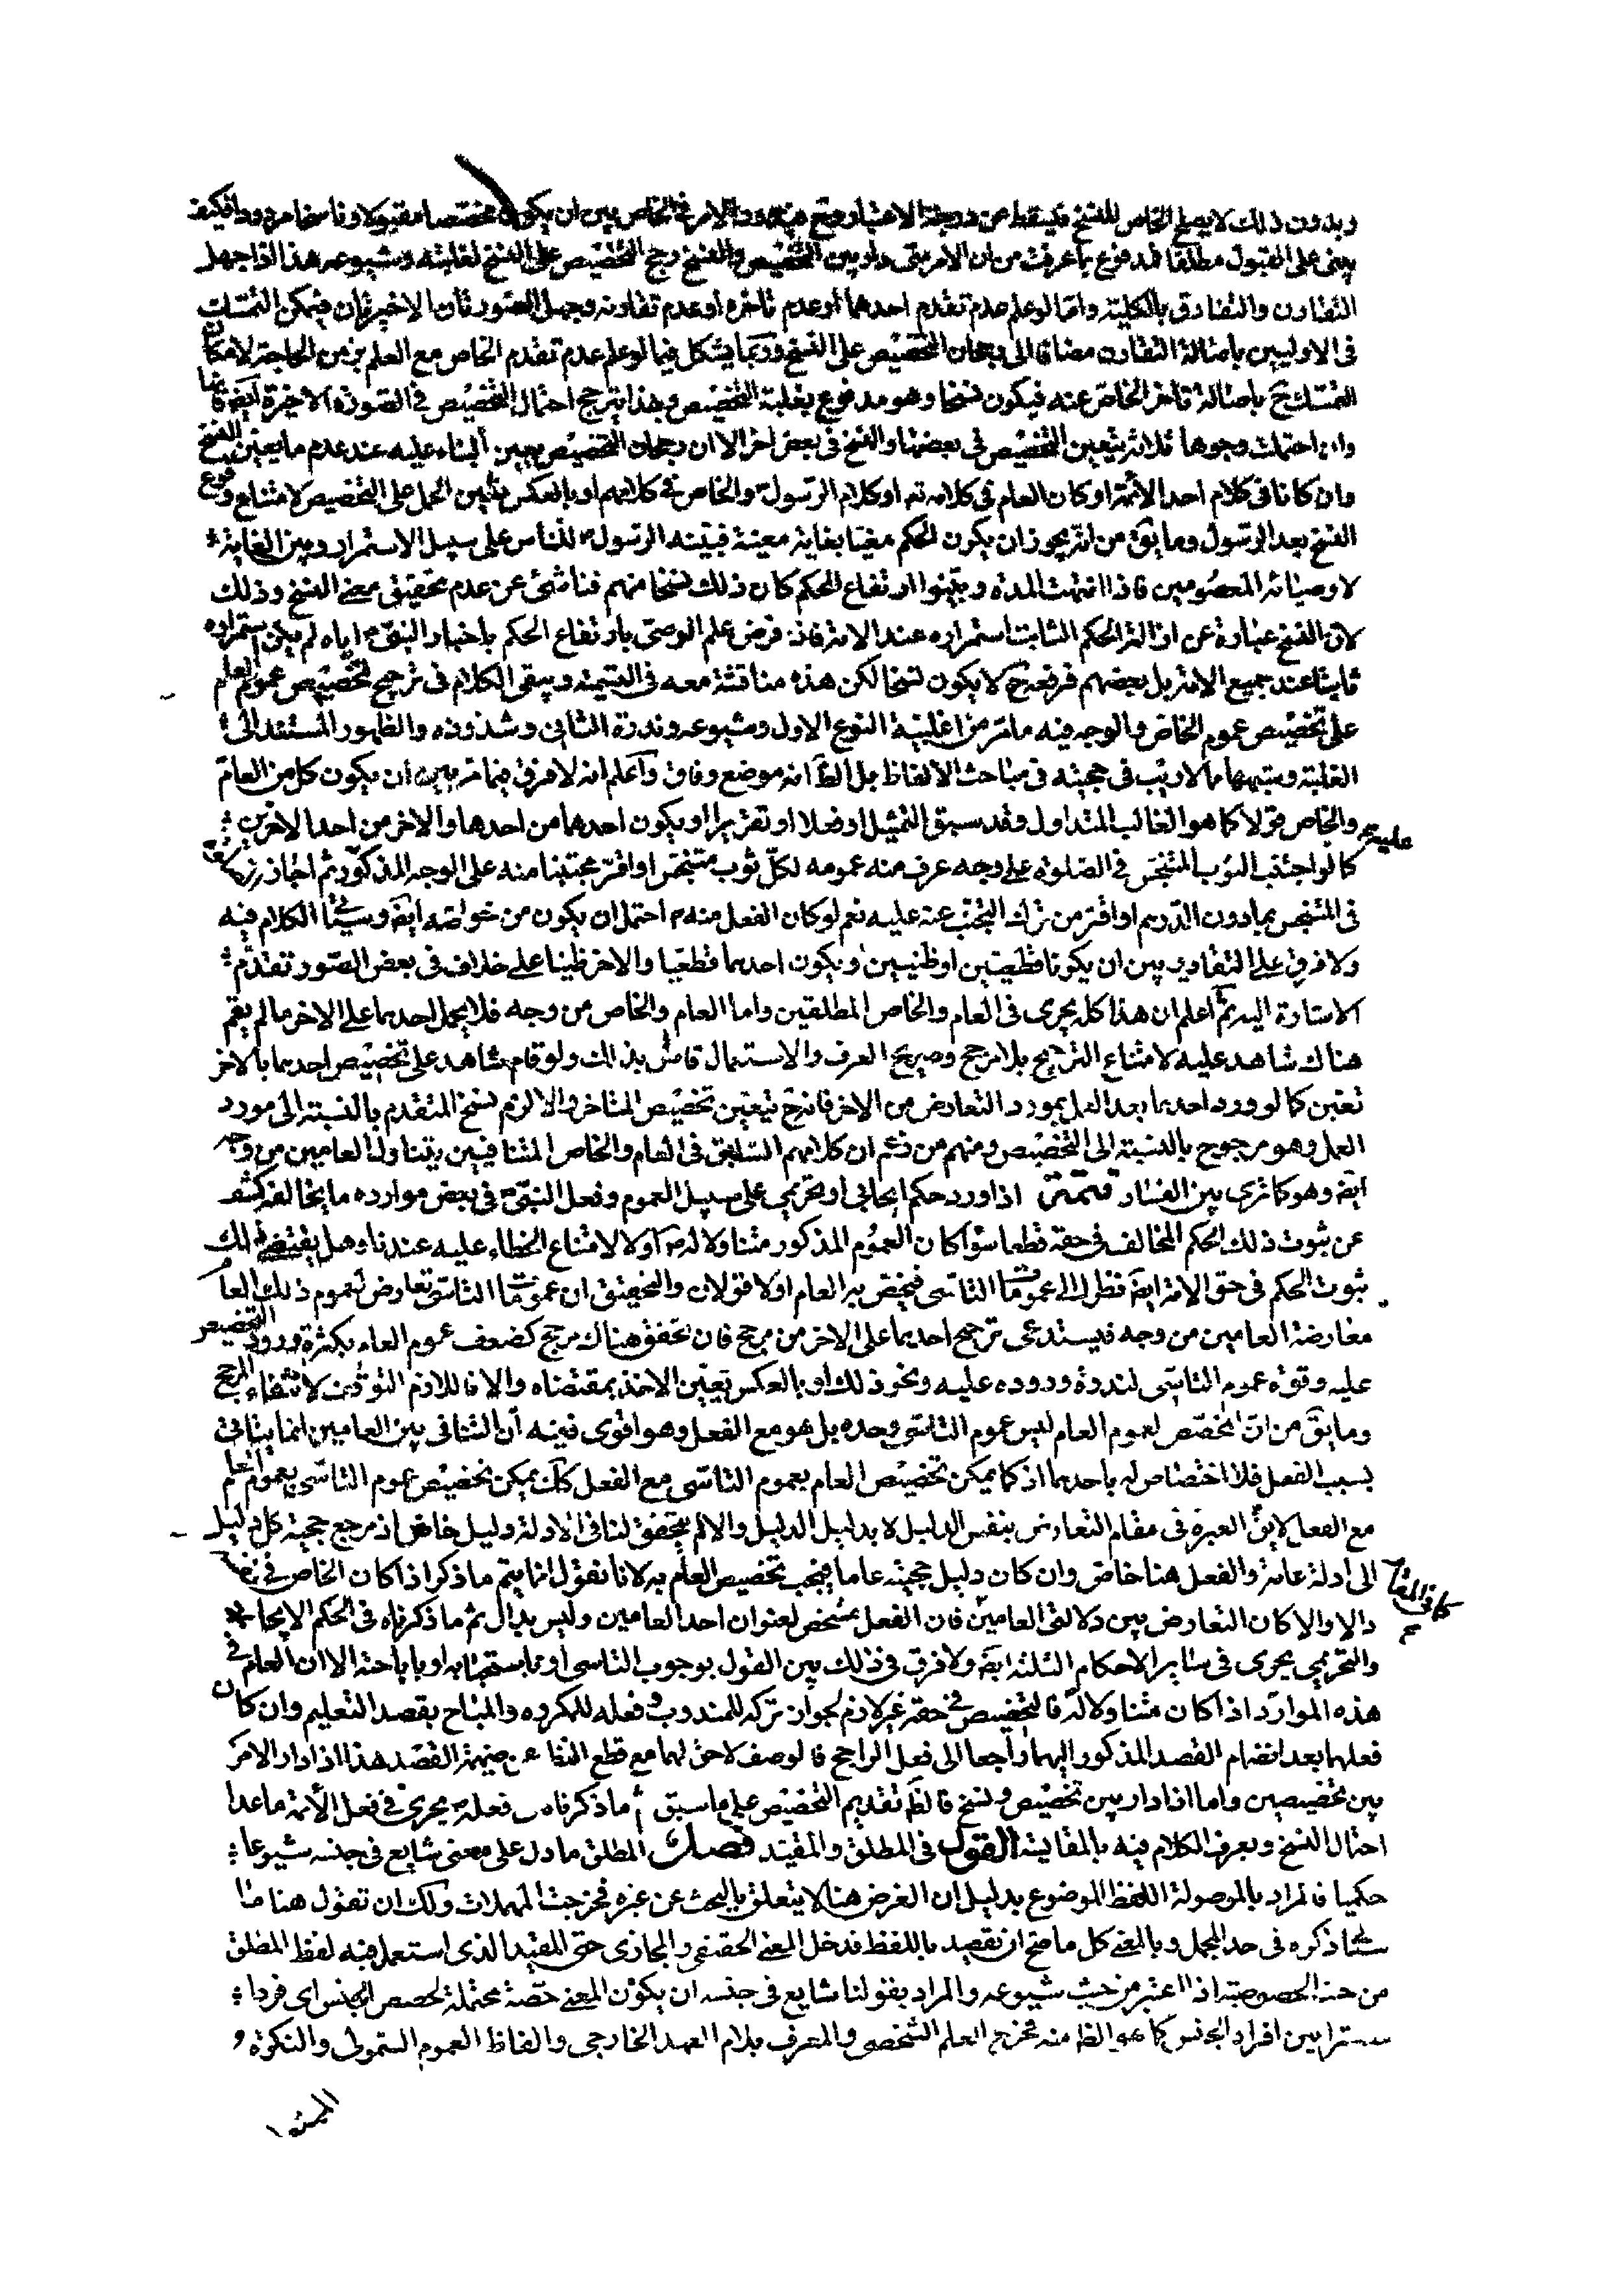 وبدون ذلك لا يصلح الخاص للنسخ فيسقط عن درجة الاعتبار ومع دوران الامر في الخاص بين ان يكون مخصصا مقبولا وناسخا مردودا فكيف
يبنى على القبول مطلقا فمدفوع بما عرفت من ان الامر متى دار بين التخصيص والنسخ رجح التخصيص على النسخ لغلبته وشيوعه هذا اذا جهل
التقارن والتفارق بالكلية واما لو علم عدم تقدم احدهما او عدم تاخره او عدم تقارنه وجهل الصورتان الاخيرتان فيمكن التمسك
في الاوليين باصالة التقارن مضافا الى رجحان التخصيص على النسخ وربما يشكل فيما لو علم عدم تقدم الخاص مع العلم بزمن الحاجة لامكان
التمسك ح باصالة تاخر الخاص عنه فيكون نسخا وهو مدفوع بغلبة التخصيص وبهذا يترجح احتمال التخصيص في الصورة الاخيرة ايضا فانها
وان احتملت وجوها ثلاثة يتعين التخصيص في بعضها والنسخ في بعض اخر الا ان رجحان التخصيص يعين البناء عليه عند عدم ما يعين النسخ
وان كانا في كلام احد الائمة او كان العام في كلامه تع او كلام الرسول والخاص في كلامهم او بالعكس يتعين الحمل على التخصيص لامتناع وقوع
النسخ بعد الرسول وما يق من انه يجوز ان يكون الحكم مغيا بغاية معينة فبينه الرسول للناس على سبيل الاستمرار وبين الغاية
لاوصيائه المعصومين فاذا انتهت المدة وبينوا ارتفاع الحكم كان ذلك نسخا منهم فناشئ عن عدم تحقيق معنى النسخ وذلك
لان النسخ عبارة عن ازالة الحكم الثابت استمراره عند الامة فاذا فرض علم الوصي بارتفاع الحكم باخبار النبي اياه لم يكن استمراره
ثابتا عند جميع الامة بل بعضهم فرفعه ح لا يكون نسخا لكن هذه مناقشة معه في التسمية ويبقى الكلام في ترجيح تخصيص عموم العام
على تخصيص عموم الخاص والوجه فيه ما مر من اغلبية النوع الاول وشيوعه وندرة الثاني وشذوذه والظهور المستند الى
الغلبة وشبهها مما لا ريب في حجيته في مباحث الالفاظ بل الظ انه موضع وفاق واعلم انه لا فرق فيما مر بين ان يكون كل من العام
والخاص قولا كما هو الغالب المتداول وقد سبق التمثيل او فعلا او تقريرا او يكون احدهما من احدها والاخر من احد الاخرين
كما لو اجتنب الثوب المتنجس في الصلوة على وجه عرف منه عمومه لكل ثوب متنجس او اقر مجتنبا منه على الوجه المذكور ثم اجاز
في المتنجس بما دون الدرهم او اقر من ترك التجنب عنه عليه نعم لو كان الفعل منه احتمل ان يكون من خواصه ايضا وسياتي الكلام فيه
ولا فرق على التقادير بين ان يكونا قطعيين او ظنيين او يكون احدهما قطعيا والاخر ظنيا على خلاف في بعض الصور تقدم
الاشارة اليه ثم اعلم ان هذا كله يجرى في العام والخاص المطلقين واما العام والخاص من وجه فلا يحمل احدهما على الاخر ما لم يقم
هناك شاهد عليه لامتناع الترجيح بلا مرجح وصريح العرف والاستعمال قاض بذلك ولو قام شاهد على تخصيص احدهما بالاخر
تعين كما لو ورد احدهما بعد العمل بمورد التعارض من الاخر فانه ح يتعين تخصيص المتاخر والا لزم نسخ المتقدم بالنسبة الى مورد
العمل وهو مرجوح بالنسبة الى التخصيص ومنهم من زعم ان كلامهم السابق في العام والخاص المتنافيين يتناول العامين من وجه
ايضا وهو كما ترى بين الفساد تتمة اذا ورد حكم ايجابي او تحريمي على سبيل العموم وفعل النبي في بعض موارده ما يخالفه كشف
عن ثبوت ذلك الحكم المخالف في حقه قطعا سواء كان العموم المذكور متناولا له او لا لامتناع الخطاء عليه عندنا وهل يقتضي ذلك
ثبوت الحكم في حق الامة ايضا نظرا الى عمومات التاسى فيخص به العام او لا قولان والتحقيق ان عمومات التاسى تعارض عموم ذلك العام
معارضة العامين من وجه فيستدعى ترجيح احدهما على الاخر من مرجح فان تحقق هناك مرجح كضعف عموم العام بكثرة ورود التخصيص
عليه وقوة عموم التاسى لندرة وروده عليه ونحو ذلك او بالعكس تعين الاخذ بمقتضاه والا فاللازم التوقف لانتفاء المرجح
وما يق من ان المخصص لعموم العام ليس عموم التاسى وحده بل هو مع الفعل وهو اقوى ففيه ان التنافى بين العامين انما يتاتى
بسبب الفعل فلا اختصاص له باحدهما اذ كما يمكن تخصيص العام بعموم التاسى مع الفعل كك يمكن تخصيص عموم التاسى بعموم العام
مع الفعل لا يق العبرة في مقام التعارض بنفس الدليل لا بدليل الدليل والا لم يتحقق لنا في الادلة دليل خاص اذ مرجع حجية كل دليل
الى ادلة عامة والفعل هنا خاص وان كان دليل حجيته عاما فيجب تخصيص العام به لانا نقول انما يتم ما ذكر اذا كان الخاص في نفسه
دالا والا كان التعارض بين دلالتى العامين فان الفعل مشخص لعنوان احد العامين وليس بدال ثم ما ذكرناه في الحكم الايجابي
والتحريمي يجرى في سائر الاحكام الثلثة ايضا ولا فرق في ذلك بين القول بوجوب التاسى او باستحبابه او باباحته الا ان العام في
هذه الموارد اذا كان متناولا له فالتخصيص في حقه غير لازم لجواز تركه للمندوب وفعله للمكروه والمباح بقصد التعليم وان كان
فعلهما بعد انضمام القصد المذكور اليهما راجعا الى فعل الراجح فالوصف لاحق لهما مع قطع النظر عن ضميمة القصد هذا اذا دار الامر
بين تخصيصين واما اذا دار بين تخصيص ونسخ فالظ تقديم التخصيص على ما سبق ثم ما ذكرناه في فعله يجرى في فعل الائمة ما عدا
احتمال النسخ ويعرف الكلام فيه بالمقايسة القول في المطلق والمقيد فصل المطلق ما دل على معنى شايع في جنسه شيوعا
حكميا فالمراد بالموصولة اللفظ الموضوع بدليل ان الغرض هنا لا يتعلق بالبحث عن غيره فخرجت المهملات ولك ان تقول هنا ما
سياتى ذكره في حد المجمل وبالمعنى كل ما صح ان يقصد باللفظ فدخل المعنى الحقيقي والمجازى حتى المقيد الذى استعمل فيه لفظ المطلق
من حيث الخصوصية اذا اعتبر من حيث شيوعه والمراد بقولنا شايع في جنسه ان يكون المعنى حصة محتملة لحصص الجنس اى فردا
بين افراد الجنس كما هو الظ منه فخرج العلم الشخصى والمعرف بلام العهد الخارجى والفاظ العموم الشمولى والنكرة